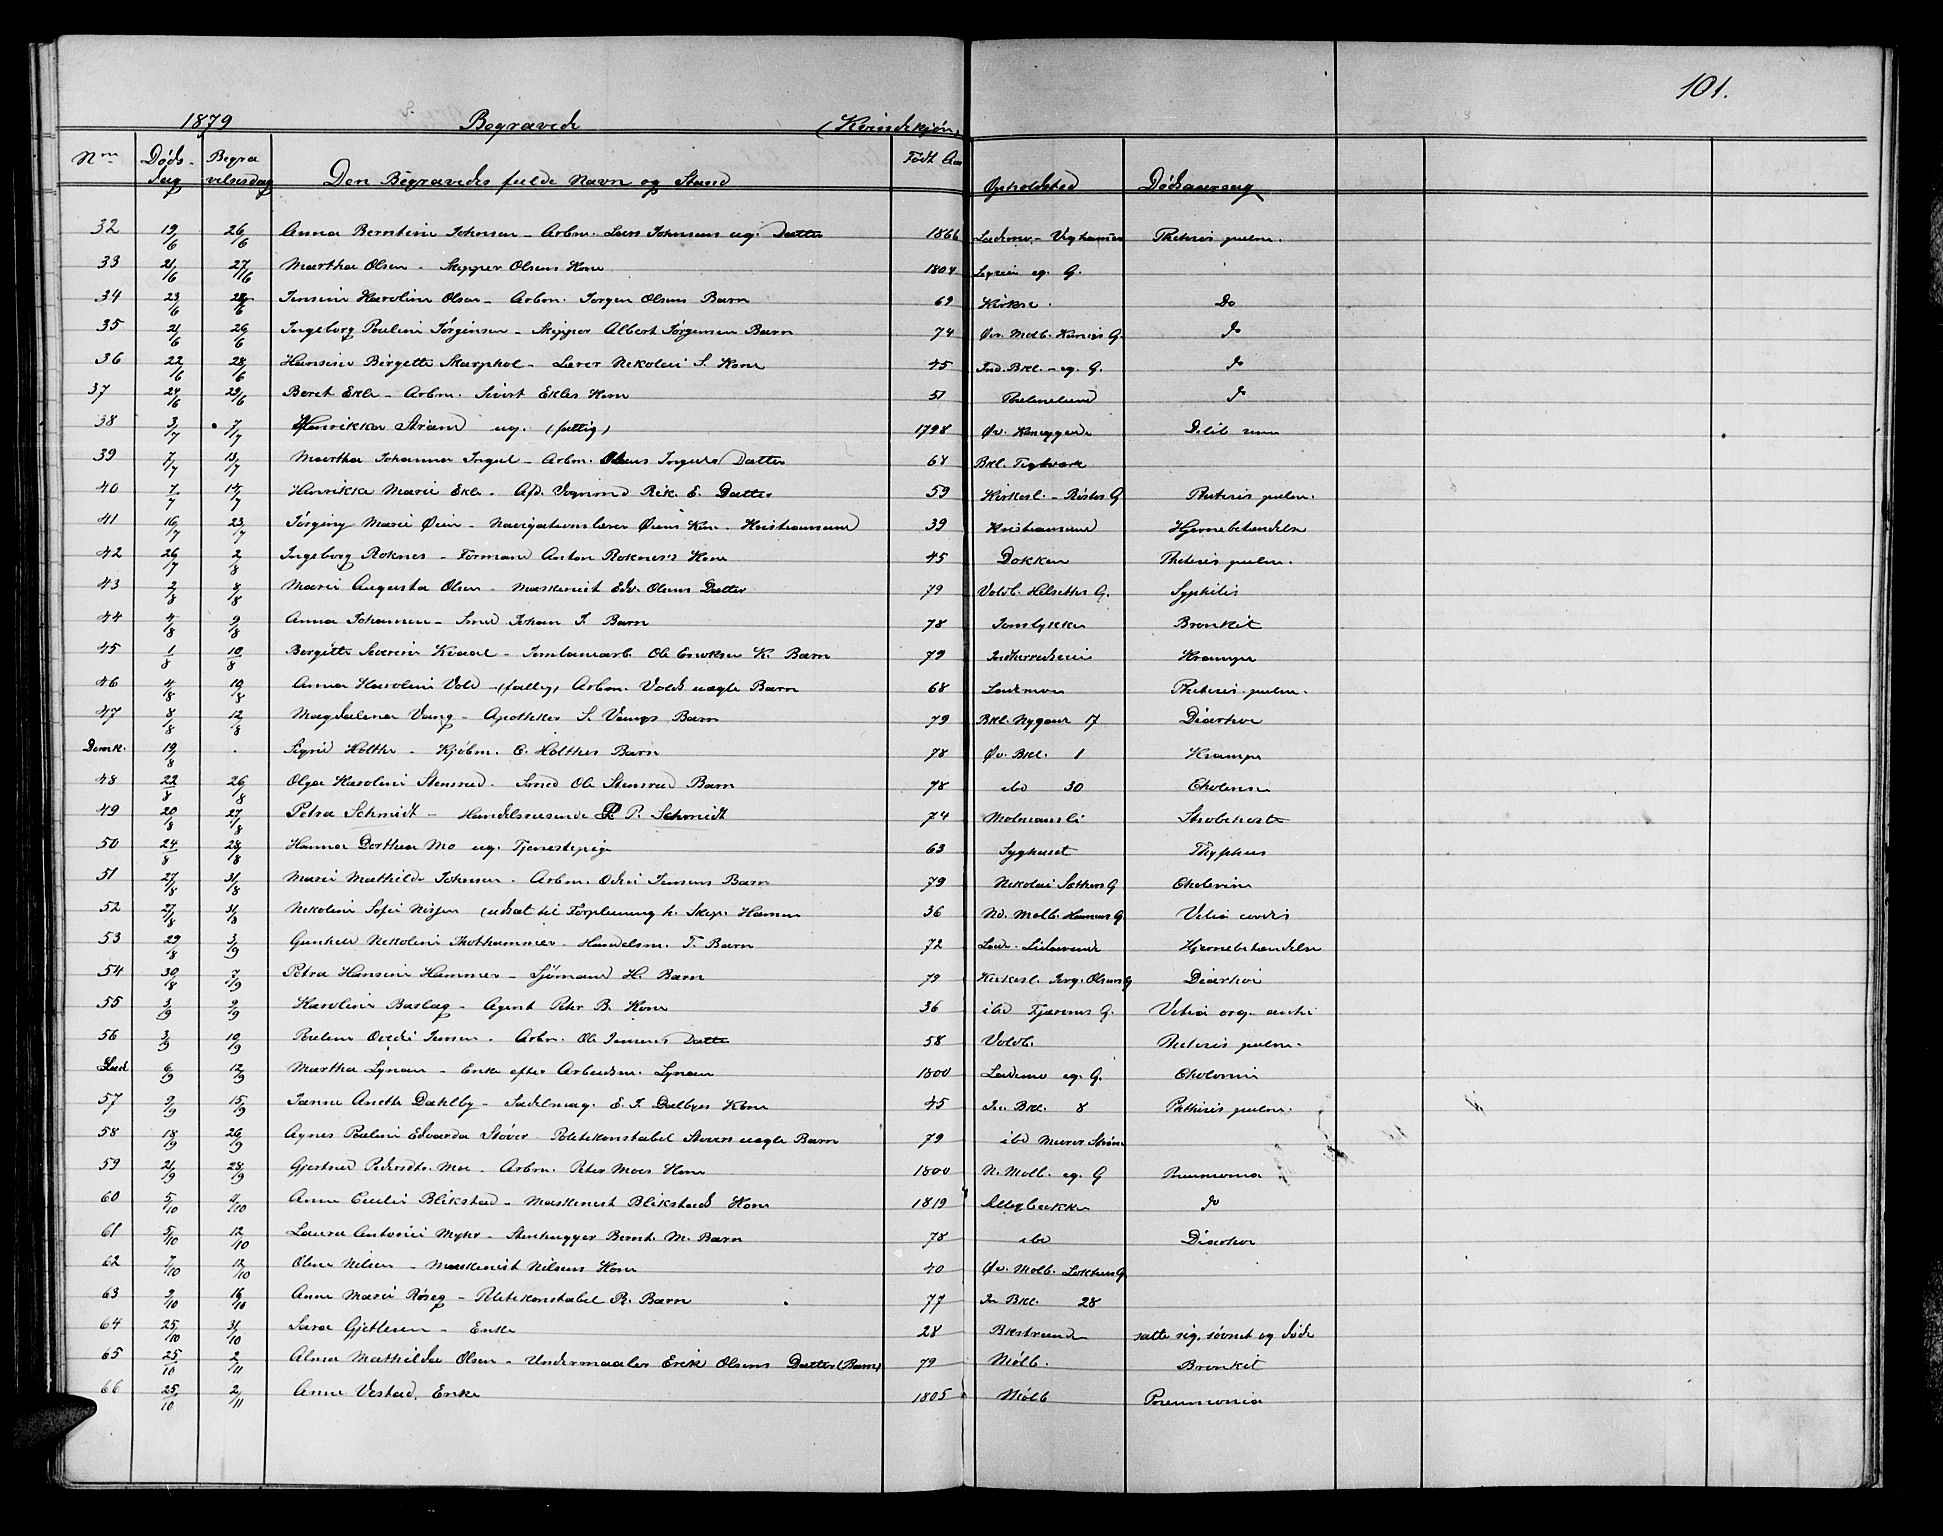 101.
1879 Begravede (Kvindekjøn)
Nr. Døds- dag Begra- velsesdag Den Begravedes fulde Navn og Stand Født Aar Opholdsted Dødsaarsag
32 19/6 26/6 Anna Berntine Johnsen - Arbm. Lars Johnsens ug. Datter 1866 Lademo. - Phtisis pulm.
33 21/6 27/6 Martha Olsen - Skipper Olsens Kone 1804 eg. G.
34 23/6 28/6 Jensine Karoline Olsen - Arbm. Jørgen Olsens Barn 69 Do
35 21/6 26/6 Ingeborg Pauline Jørgensen - Skipper Albert Jørgensen Barn 74 Øv. Molb. G. do
36 22/6 28/6 Hansine Birgitte Skarphol - Lærer Nekolai S. Kone 45 Ind. Bkl. - eg. G. do
37 24/6 29/6 Beret Ekle - Arbm. Sivert Ekles Kone 51 do
38 3/7 7/7 Henrikka Strand ug. (fattig) 1798 Øv.
39 7/7 13/7 Martha Johanna Ingul - Arbm. Olaus Inguls Datter 64 Bkl. Teglværk
40 7/7 14/7 Henrikke Marie Ekle - Afd. Sognmd Rik. E. Datter 59 Kirkesl. - G Phtisis pulm.
41 16/7 23/7 Jørginy Marie Øien - Navigationslærer Øiens Kone. Kristiansund 39 Kristiansund Hjernebetændelse
42 26/7 2/8 Ingeborg Roknes - Formand Anton Roknes's Kone 45 Dokken Phtisis pulm.
43 2/8 8/8 Marie Augusta Olsen - Maskenist Edv. Olsens Datter 79 Voldb. Helseths G. Syphilis
44 4/8 9/8 Anna Johansen - Smed Johan J. Barn 78 Bronkit
45 1/8 10/8 Bergitte Severine Kvaal - Jernbanearb. Ole Eriksen K. Barn 79 Krampe
46 4/8 10/8 Anna Karoline Vold - (fattig) Arbm. Volds uægte Barn 68 Lademoen Phtisis pulm.
47 8/8 12/8 Magdalena Vang - Apotheker S. Vangs Barn 79 Bkl. Nygade 17 Diarhoe
Domk. 19/8 . Sigrid Holthe - Kjøbm. C. Holthes Barn 78 Øv. Bkl. 1 Krampe
48 22/8 26/8 Olga Karoline Stensrud - Smed Ole Stensrud Barn 78 ibd 30 Cholerine
49 20/8 27/8 Petra Schmidt - Handelsreisende P. P. Schmidt 74 Strubehoste
50 24/8 28/8 Hanna Dorthea Mo ug. Tjenestepige 63 Syghuset Thyphus
51 27/8 31/8 Marie Mathilde Johnsen - Arbm. Odin Jensens Barn 79 Nekolai Sæthers G Cholerine
52 27/8 31/8 Nekoline Sofie (udsat til Forpleining h. Skip. 36 Nd. Molb. G. Vitia cordis
53 29/8 3/9 Gunhild Nekoline - Handelsm. T. Barn 72 Lade. Hjernebetændelse
54 30/8 7/9 Petra Hansine Hammer - Sjømand H. Barn 79 Kirkesl. Jørg. Olsens G Diarhoe
55 3/9 9/9 Karoline Baslag - Agent Peter B. Kone 36 ibd G. Vitia org.
56 3/9 10/9 Pauline Ovidie Jensen - Arbm. Ole Jensens Datter 58 Voldb. Phtisis pulm.
Lad 6/9 12/9 Martha Lynan - Enke efter Arbeidsm. Lynan 1800 Lademo eg. G. Cholerine
57 9/9 15/9 Janne Anette Dahlby - Sadelmag. E. J. Dalbyes Kone 45 In. Bkl. 8 Phthisis pulm.
58 18/9 26/9 Agnes Pauline Edvarda Støver - Politikonstabel Støvers uægte Barn 79 ibd Murer
59 21/9 28/9 Gjertrud Pedersdtr. Moe - Arbm. Peter Moes Kone 1800 N. Molb. eg. G Pneumonia
60 5/10 4/10 Anne Cecilie Blikstad - Maskenist Blikstads Kone 1819 do
61 5/10 12/10 Laura Antonie Myhr - Stenhugger Bernt M. Barn 78 ibd Diarhoe
62 7/10 12/10 Oline Nilsen - Maskenist Nilsens Kone 40 Øv. Molb. G
63 9/10 16/10 Anne Marie Røseg - Politikonstabel R. Barn 77 In Bkl. 28
64 25/10 31/10 Sara Gjetlesen - Enke 28 Bkstrande satte sig, sovnet og døde
65 25/10 2/11 Alma Mathilda Olsen - Undermaaler Erik Olsens Datter (Barn) 79 Mølb. Bronkit
66 25/10 2/11 Anne Vestad, Enke 1805 Mølb Pneumonia